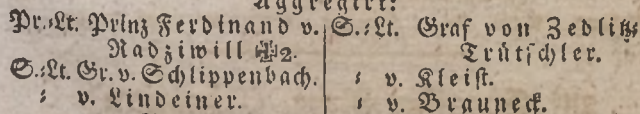 Aggregirt:
Pr.⸗Lt. Prinz Ferdinand v.
Radziwill ✠2.
S.⸗Lt. Gr. v. Schlippenbach.
⸗ v. Lindeiner.
S.⸗Lt. Graf von Zedlitz⸗
Trützschler.
⸗ v. Kleist.
⸗ v. Brauneck.